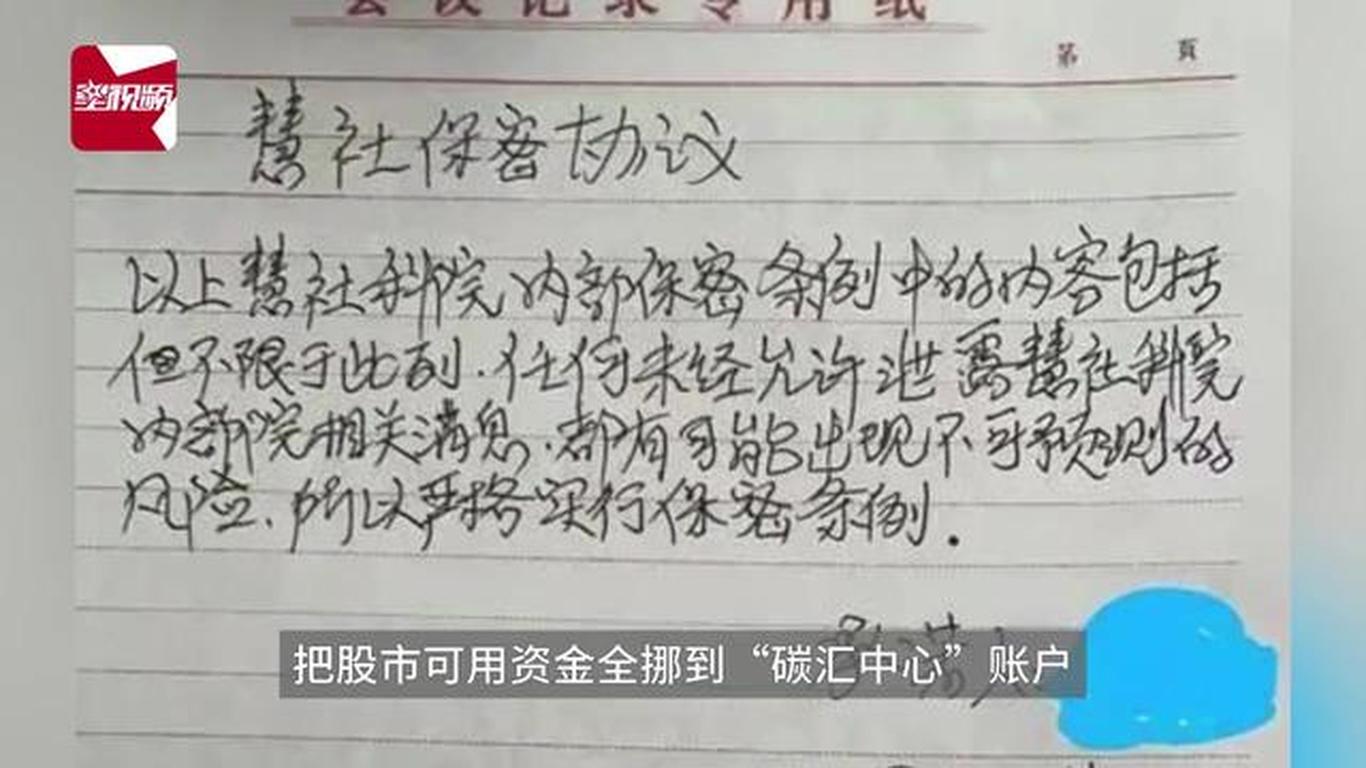 会议记录专用纸
第 頁
星视频
慧社保密协议
以上慧社科院内部保密条例中的内容包括
但不限于此列.任何未经允许泄露慧社科院
内部院相关消息.都有可能出现不可预测的
风险.所以严格实行保密条例.
把股市可用资金全挪到“碳汇中心”账户